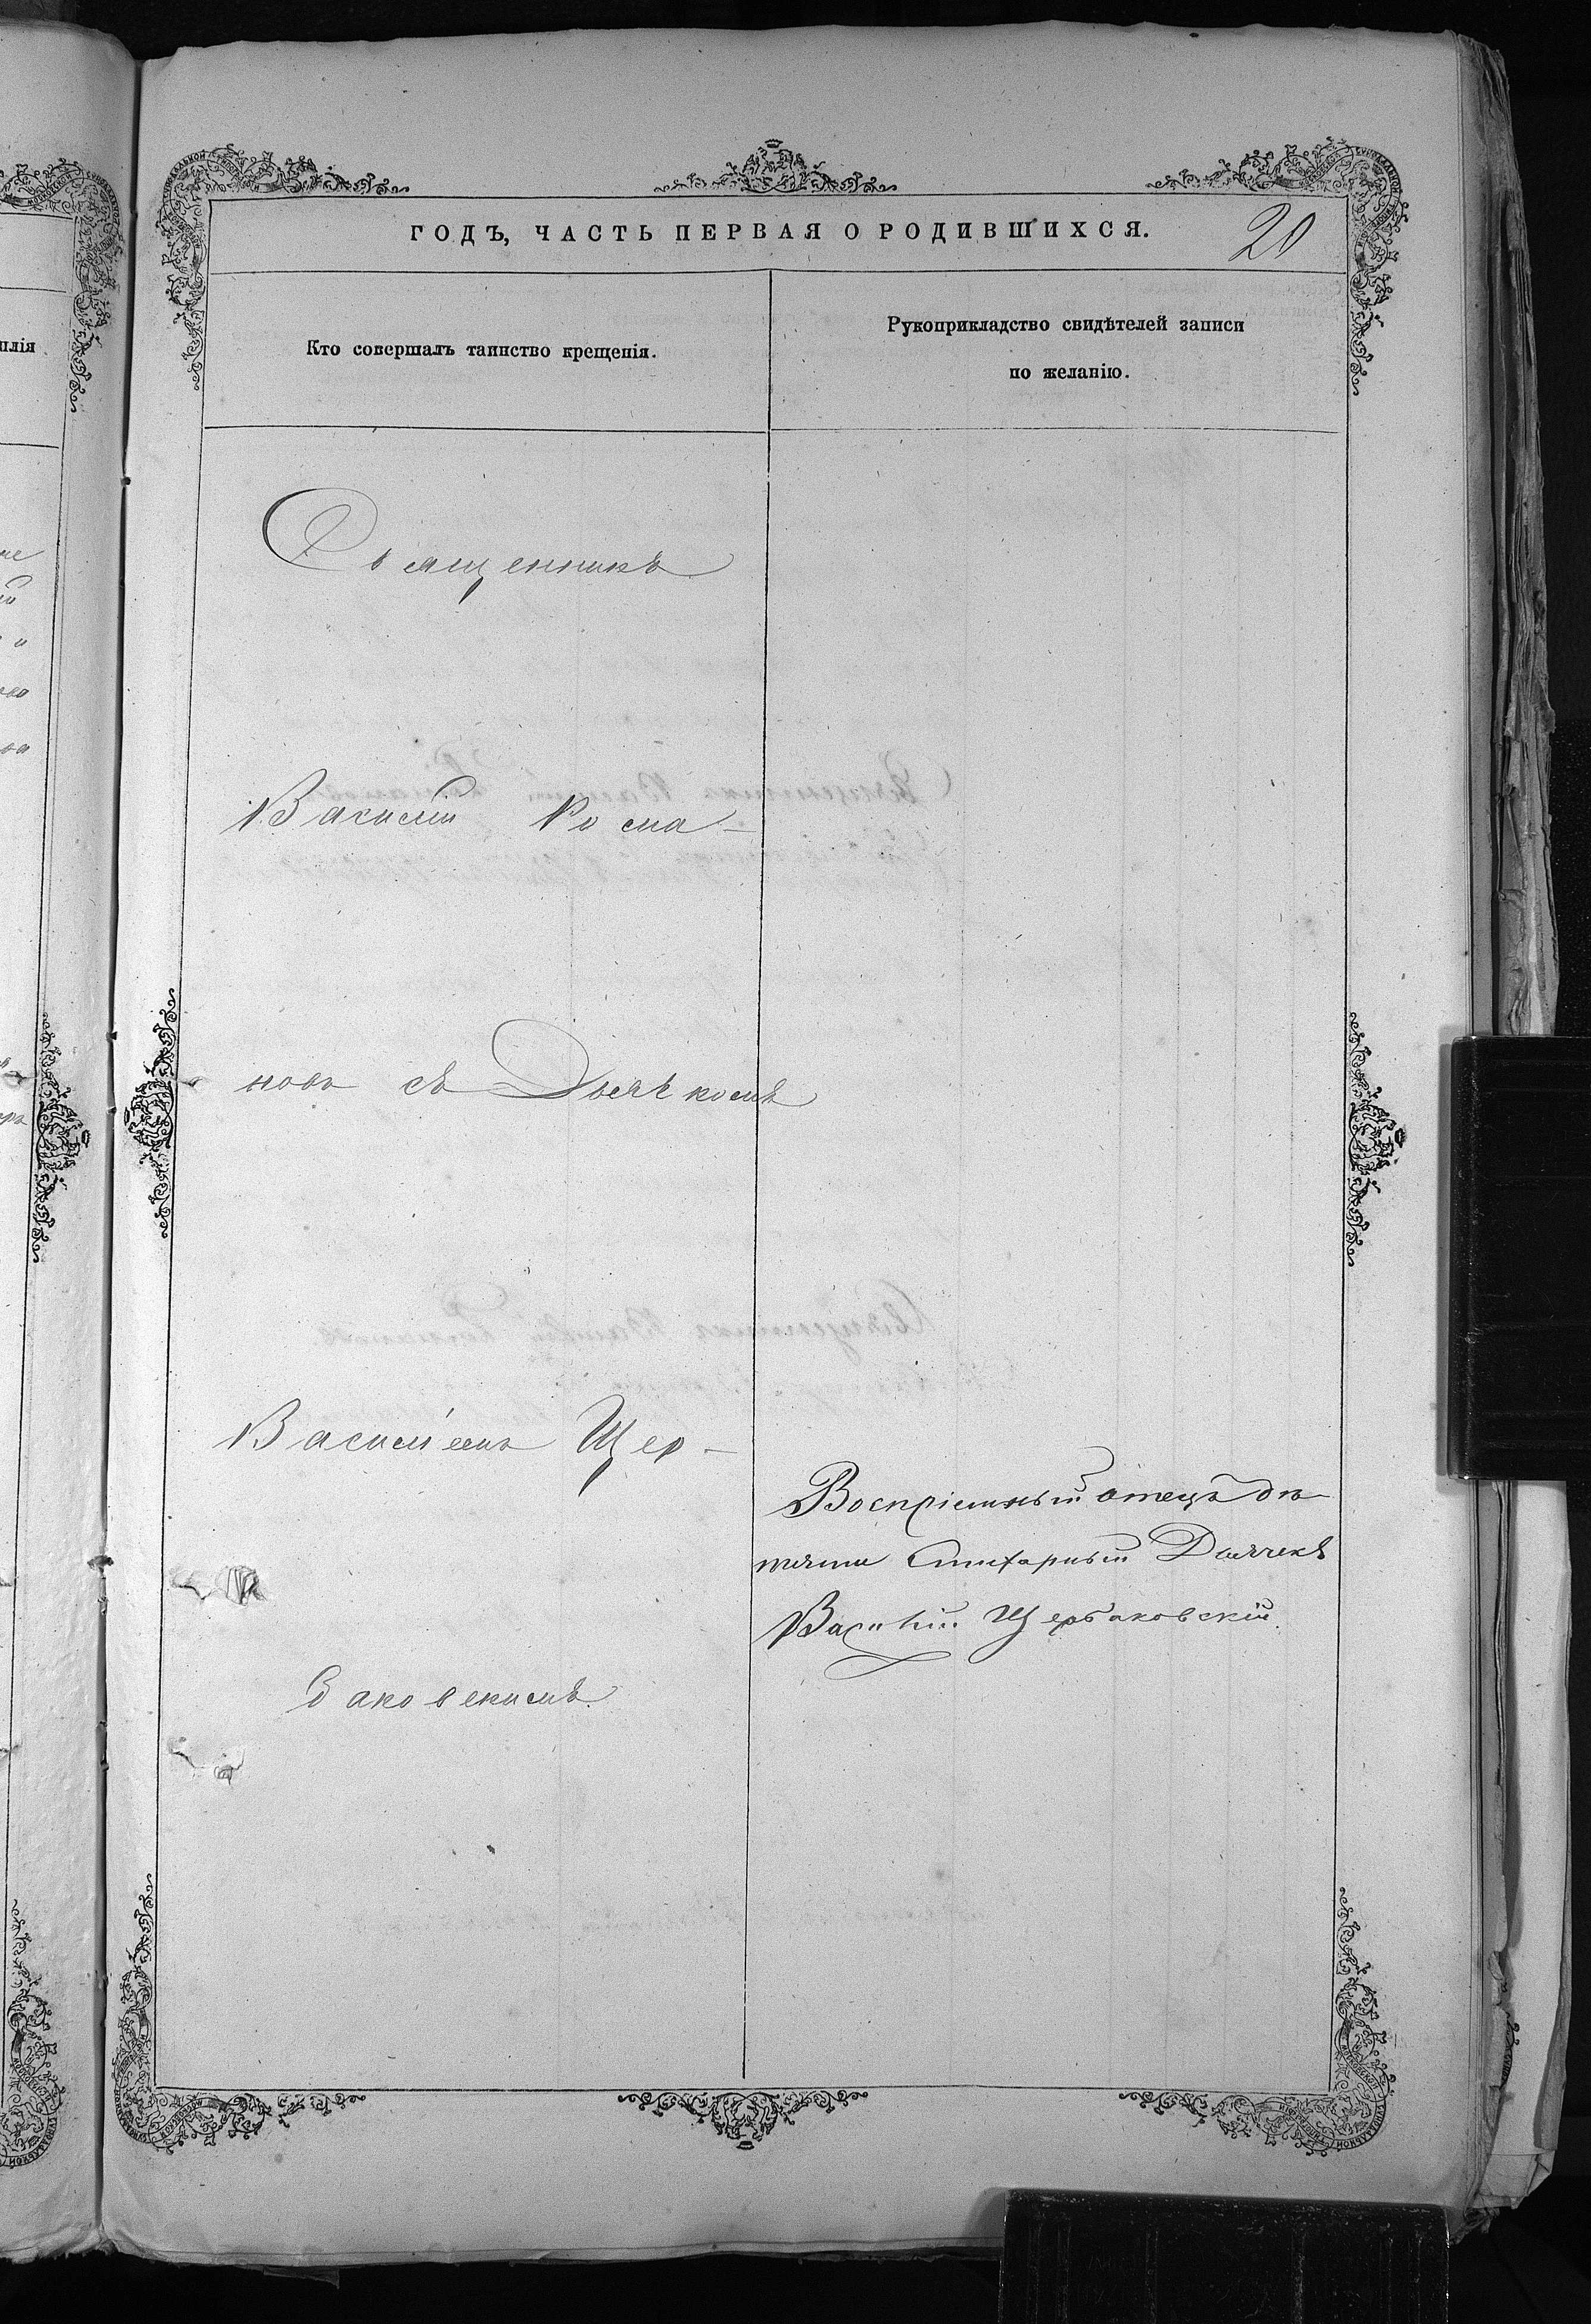 ГОДЪ, ЧАСТЬ ПЕРВАЯ О РОДИВШИХСЯ.
20
Кто совершалъ таинство крещенія.
Рукоприкладство свидѣтелей записи
по желанію.
Священникъ
Василій Рома-
новъ съ Дьячкомъ
Василіемъ Щер-
баковскимъ.
Воспріемный отецъ дѣ
тяти Стихарный Дьячекъ
Василій Щербаковскій.